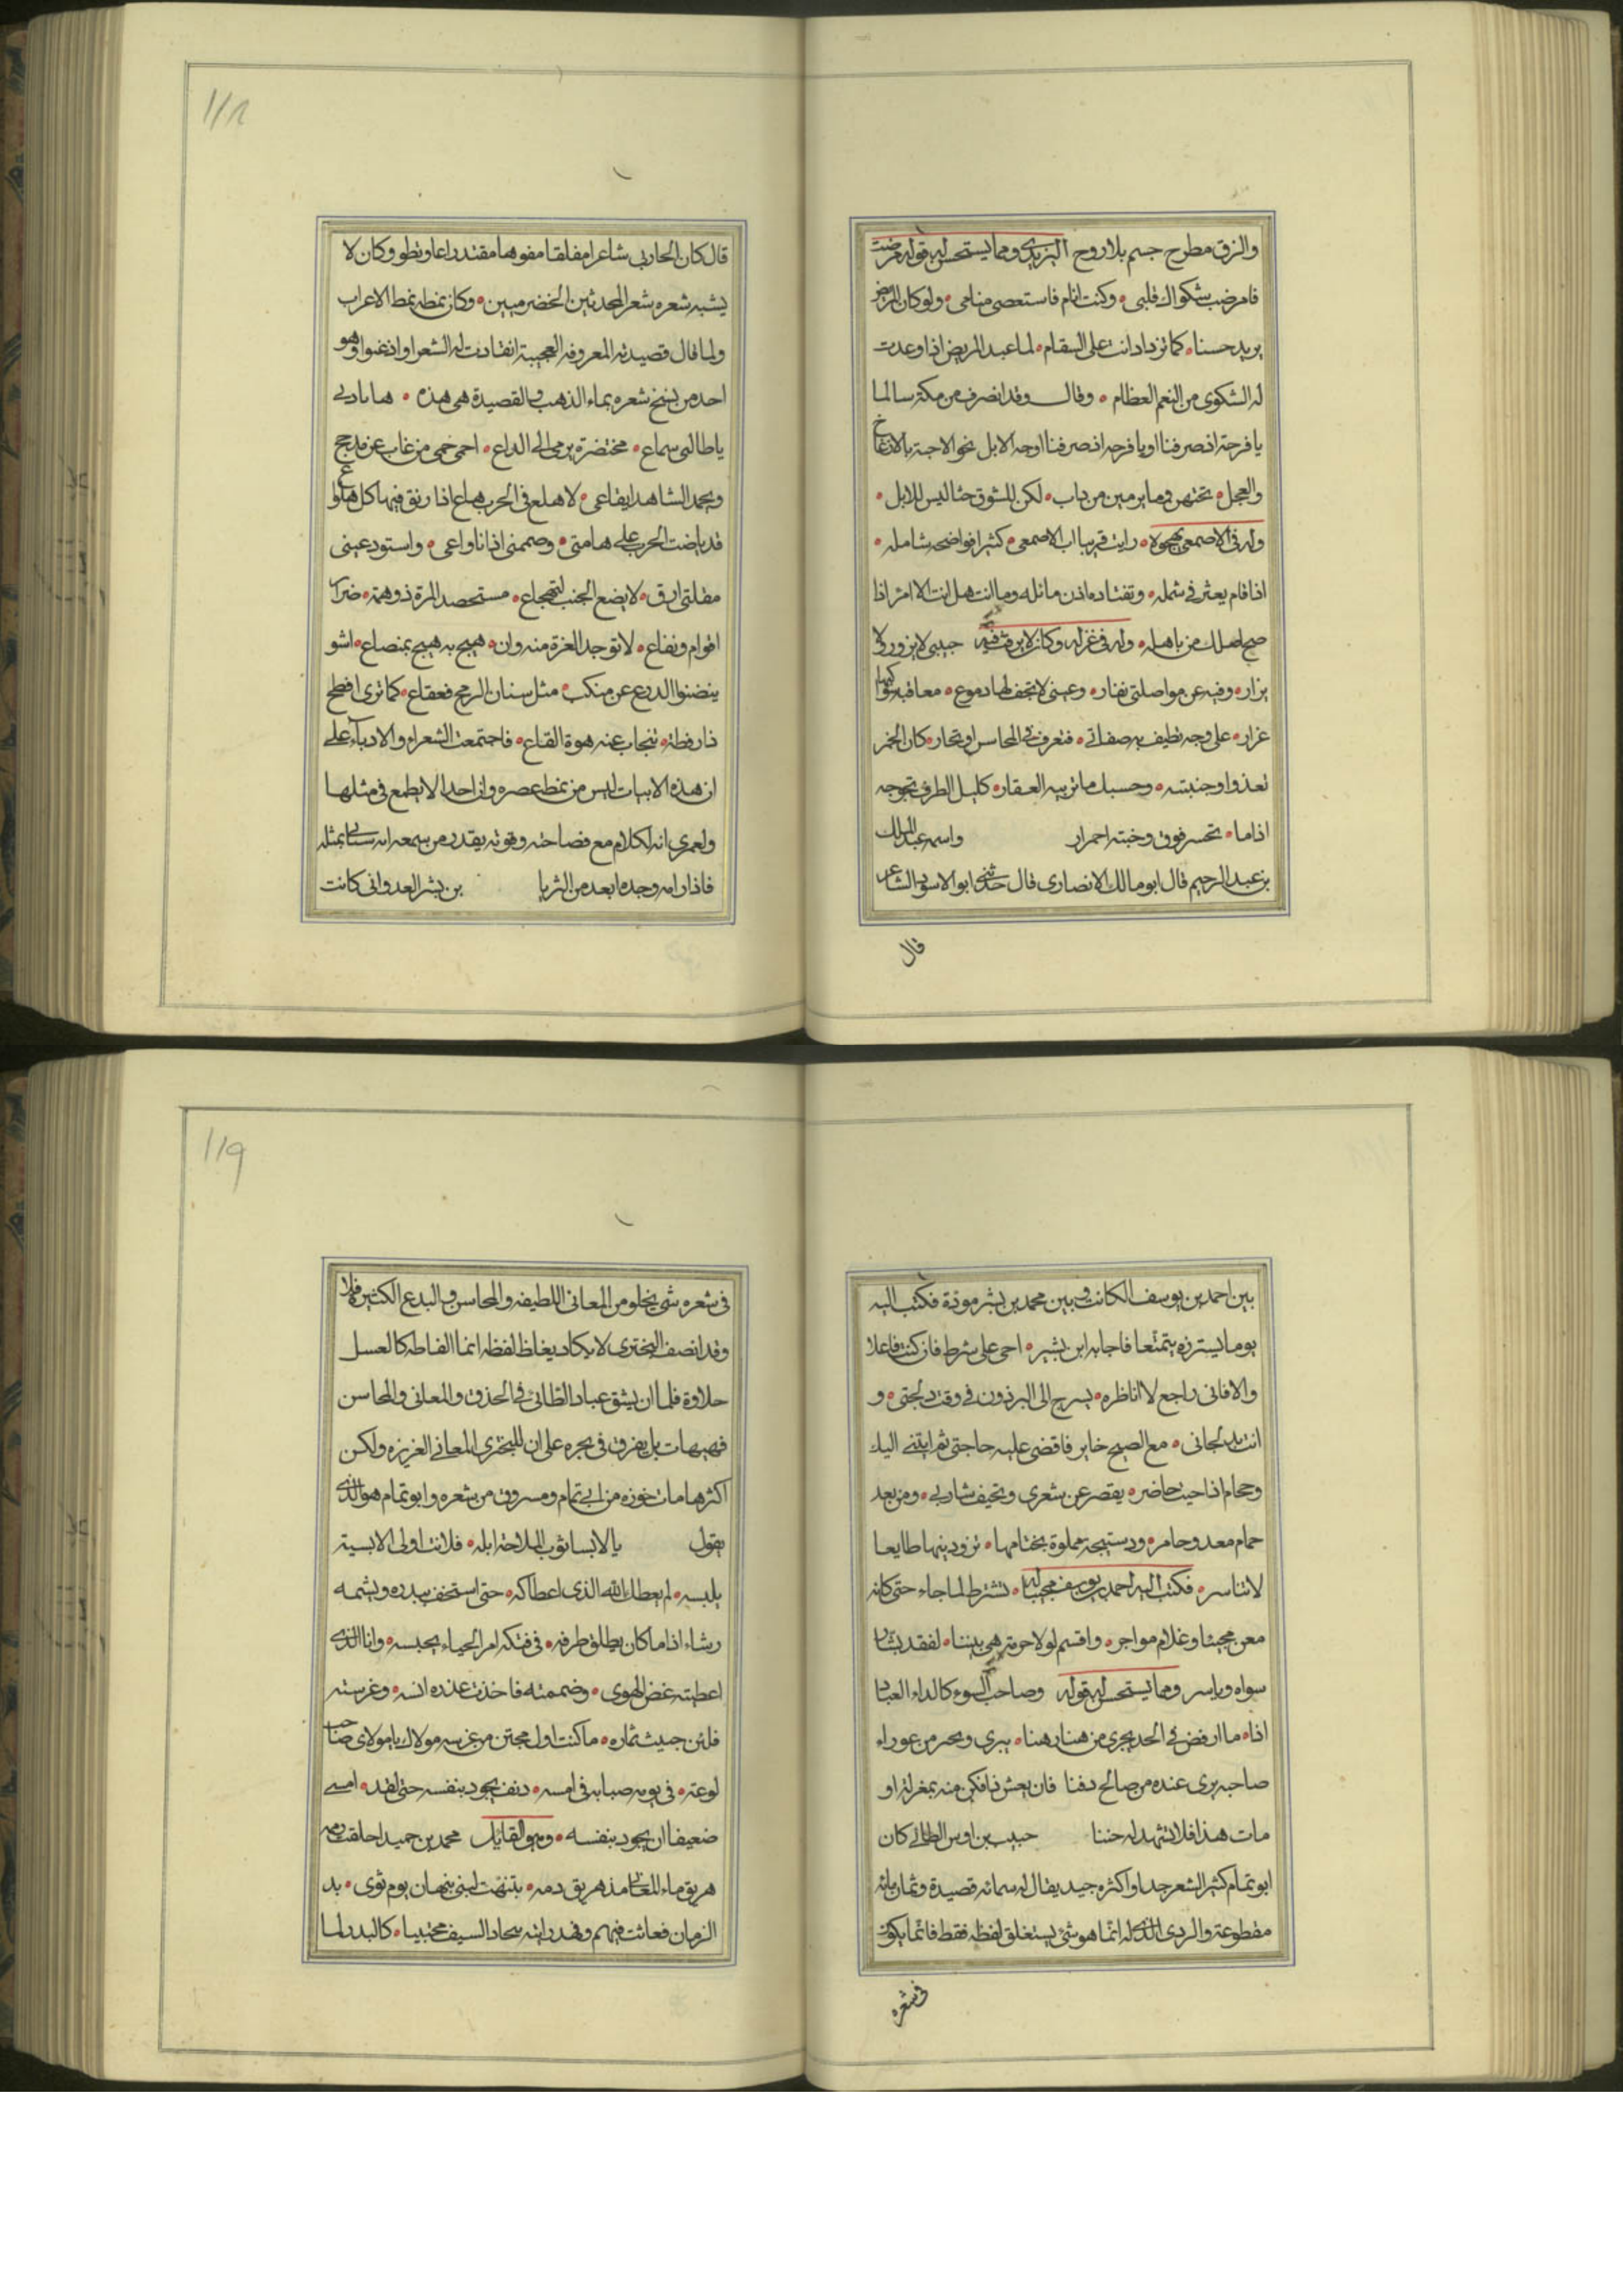 والزق مطرح جسم بلا روح اليزيدى ومما يستحسن له قوله مرضت
فامرضت شكواك قلبى • وكنت انام فاستعصى منامى • ولو كان المريض
يزيد حسنا • كما تزداد انت على السقام • لما عيد المريض اذا وعدت
له الشكوى من النعم العظام • وقال وقد انصرف من مكة سالما
يا فرحتا اذ صرفنا اوجه الابل نحو الاحبة بالازعاج
والعجل • نحثهن وما يرمين من داب • لكن للشوق حثا ليس للابل •
وله فى الاصمعى يهجوه • رايت قريبا اب الاصمعى • كثيرا فواضحه شامله •
اذا قام يعثر فى شمله • وما انت هل انت الا امرؤ اذا
صح اصلك من باهله • وله فى غزله وكان لابن حبيبى لا يزور ولا
يزار • وفيه عن مواصلتى نفار • وعينى لا تجف لها دموع •
غزار • على وجه نظيف به صفاتى • فتعرف فى المحاسن او تحار • كان الخمر
تعذوا وجنتيه • وحسبك ما تربيه العقار • كليل الطرف تجرحه
اذا ما • تحسر فوق وجنته احمرار واسمه عبد الملك
بن عبد الرحيم قال ابو مالك الانصارى قال حدثنى ابو الاسود الشاعر
قال
١١٨
قال كان الحارثى شاعرا مفلقا مفوها مقتدرا وكان لا
يشبه شعره شعر المحدثين الخضرميين • وكان نمطه نمط الاعراب
ولما قال قصيدته المعروفه العجيبة انقادت له الشعرا واذعنوا وهو
احد من ينسخ شعره بماء الذهب والقصيدة هى هذه •
محتضرة يرمى الى الداع • من غاب عن مذحج
لا هلع فى الحرب هاع اذا
قد باضت الحرب على هامتى • وصممنى اذا ناواعى • واستودعينى
مقلتى ارق • لا يضع الجنب لتهجاع • مستحصد المرة ذو همة • ضرار
اقوام ونفاع • لا توجد الغرة منه وان • هيج به هيج بمنصاع • اشو
الدرع عن منكب • مثل سنان الرمح قعقاع • كما ترى افطح
ذا رقطة • تنجاب عنه هوة القاع • فاجتمعت الشعراء والادباء على
ان هذه الابيات ليس من نمط عصره وان احدا لا يطمع فى مثلها
ولعمرى انه لكلام مع فصاحته وقوته يقدر من سمعه انه سياتى بمثله
فاذا رامه وجده ابعد من الثريا بن بشر العدوانى كانت
بين احمد بن يوسف الكاتب وبين محمد بن بشير مودة فكتب اليه
يوما يستزره فاجابه ابن بشير • اجى على شرط فان كنت فاعلا
والا فانى راجع لا اناظره • يسرج لى البرذون فى وقت دلجتى • و
انت بدلجاتى • مع الصبح خابر فاقضى عليه حاجتى ثم انثنى اليك
وحجام اذا جيت حاضر • يقصر عن شعرى ويحيف شاربى • ومن بعد
حمام معد وجامر • ودستيجة مملوة بختامها • تزودنيها طايعا
لا تتاسر • فكتب اليه احمد بن يوسف مجيبا له • تشترط لما جاء حتى كانه
مغن مجيد او غلام مواجر • واقسم لولا حرمة هى بيننا • لفقد بشارا
سواه وياسر ومما يستحسن له قوله وصاحب السوء كالداء العياء
اذا • ما ارفض فى الجلد يجرى من هنا وهنا • يبرى ويخبر من عوراء
صاحبه يرى عنده من صالح دفنا فان يعش ذا فكن منه بمعزلة او
مات هذا فلا تشهد له جننا حبيب بن اوس الطائى كان
ابو تمام كثير الشعر جدا واكثره جيد يقال له ستمائه قصيدة وثمان مائه
مقطوعة والردى الذى له انما هو شئ يستغلق لفظه فقط فاما ان يكون
فى شعره
١١٩
فى شعره شئ يخلو من المعانى اللطيفه والمحاسن والبدع الكثيرة فلا
وقد انصف البحترى لا يكاد يغلظ لفظه انما الفاظه كالعسل
حلاوة فاما ان يشق غبار الطائى فى الحذق والمعانى والمحاسن
فهيهات بل يغرق فى بحره على ان للبحترى المعانى الغزيره ولكن
اكثرها ماخوذه من ابى تمام ومسروق من شعره وابو تمام هو الذى
يقول يا لابسا ثوب الملاحة ابله • فلانت اولى لابسيه
بلبسه • لم يعطك الله الذى اعطاكه • حتى استخف ببدره وبشمسه
رشاء اذا ما كان يطلق طرفه • فى فتكه امر الحياء بحبسه • وانا الذى
اعطيته غض الهوى • وضممته فاخذت عنده انسه • وغرسته
فلئن جنيت ثماره • ما كنت اول مجتن من غرسه مولاك يا مولاى صاحب
لوعة • فى يومه صبابه فى امسه • دنف يجود بنفسه حتى لقد • امسى
ضعيفا ان يجود بنفسه • وهو القايل محمد بن حميد اخلقت رممه
هريق ماء المعالى مذ هريق دمه • تنبهت لبنى نبهان يوم ثوى • يد
الزمان فعاثت فيهم وفمه رايته بنجاد السيف محتبيا • كالبدر لما